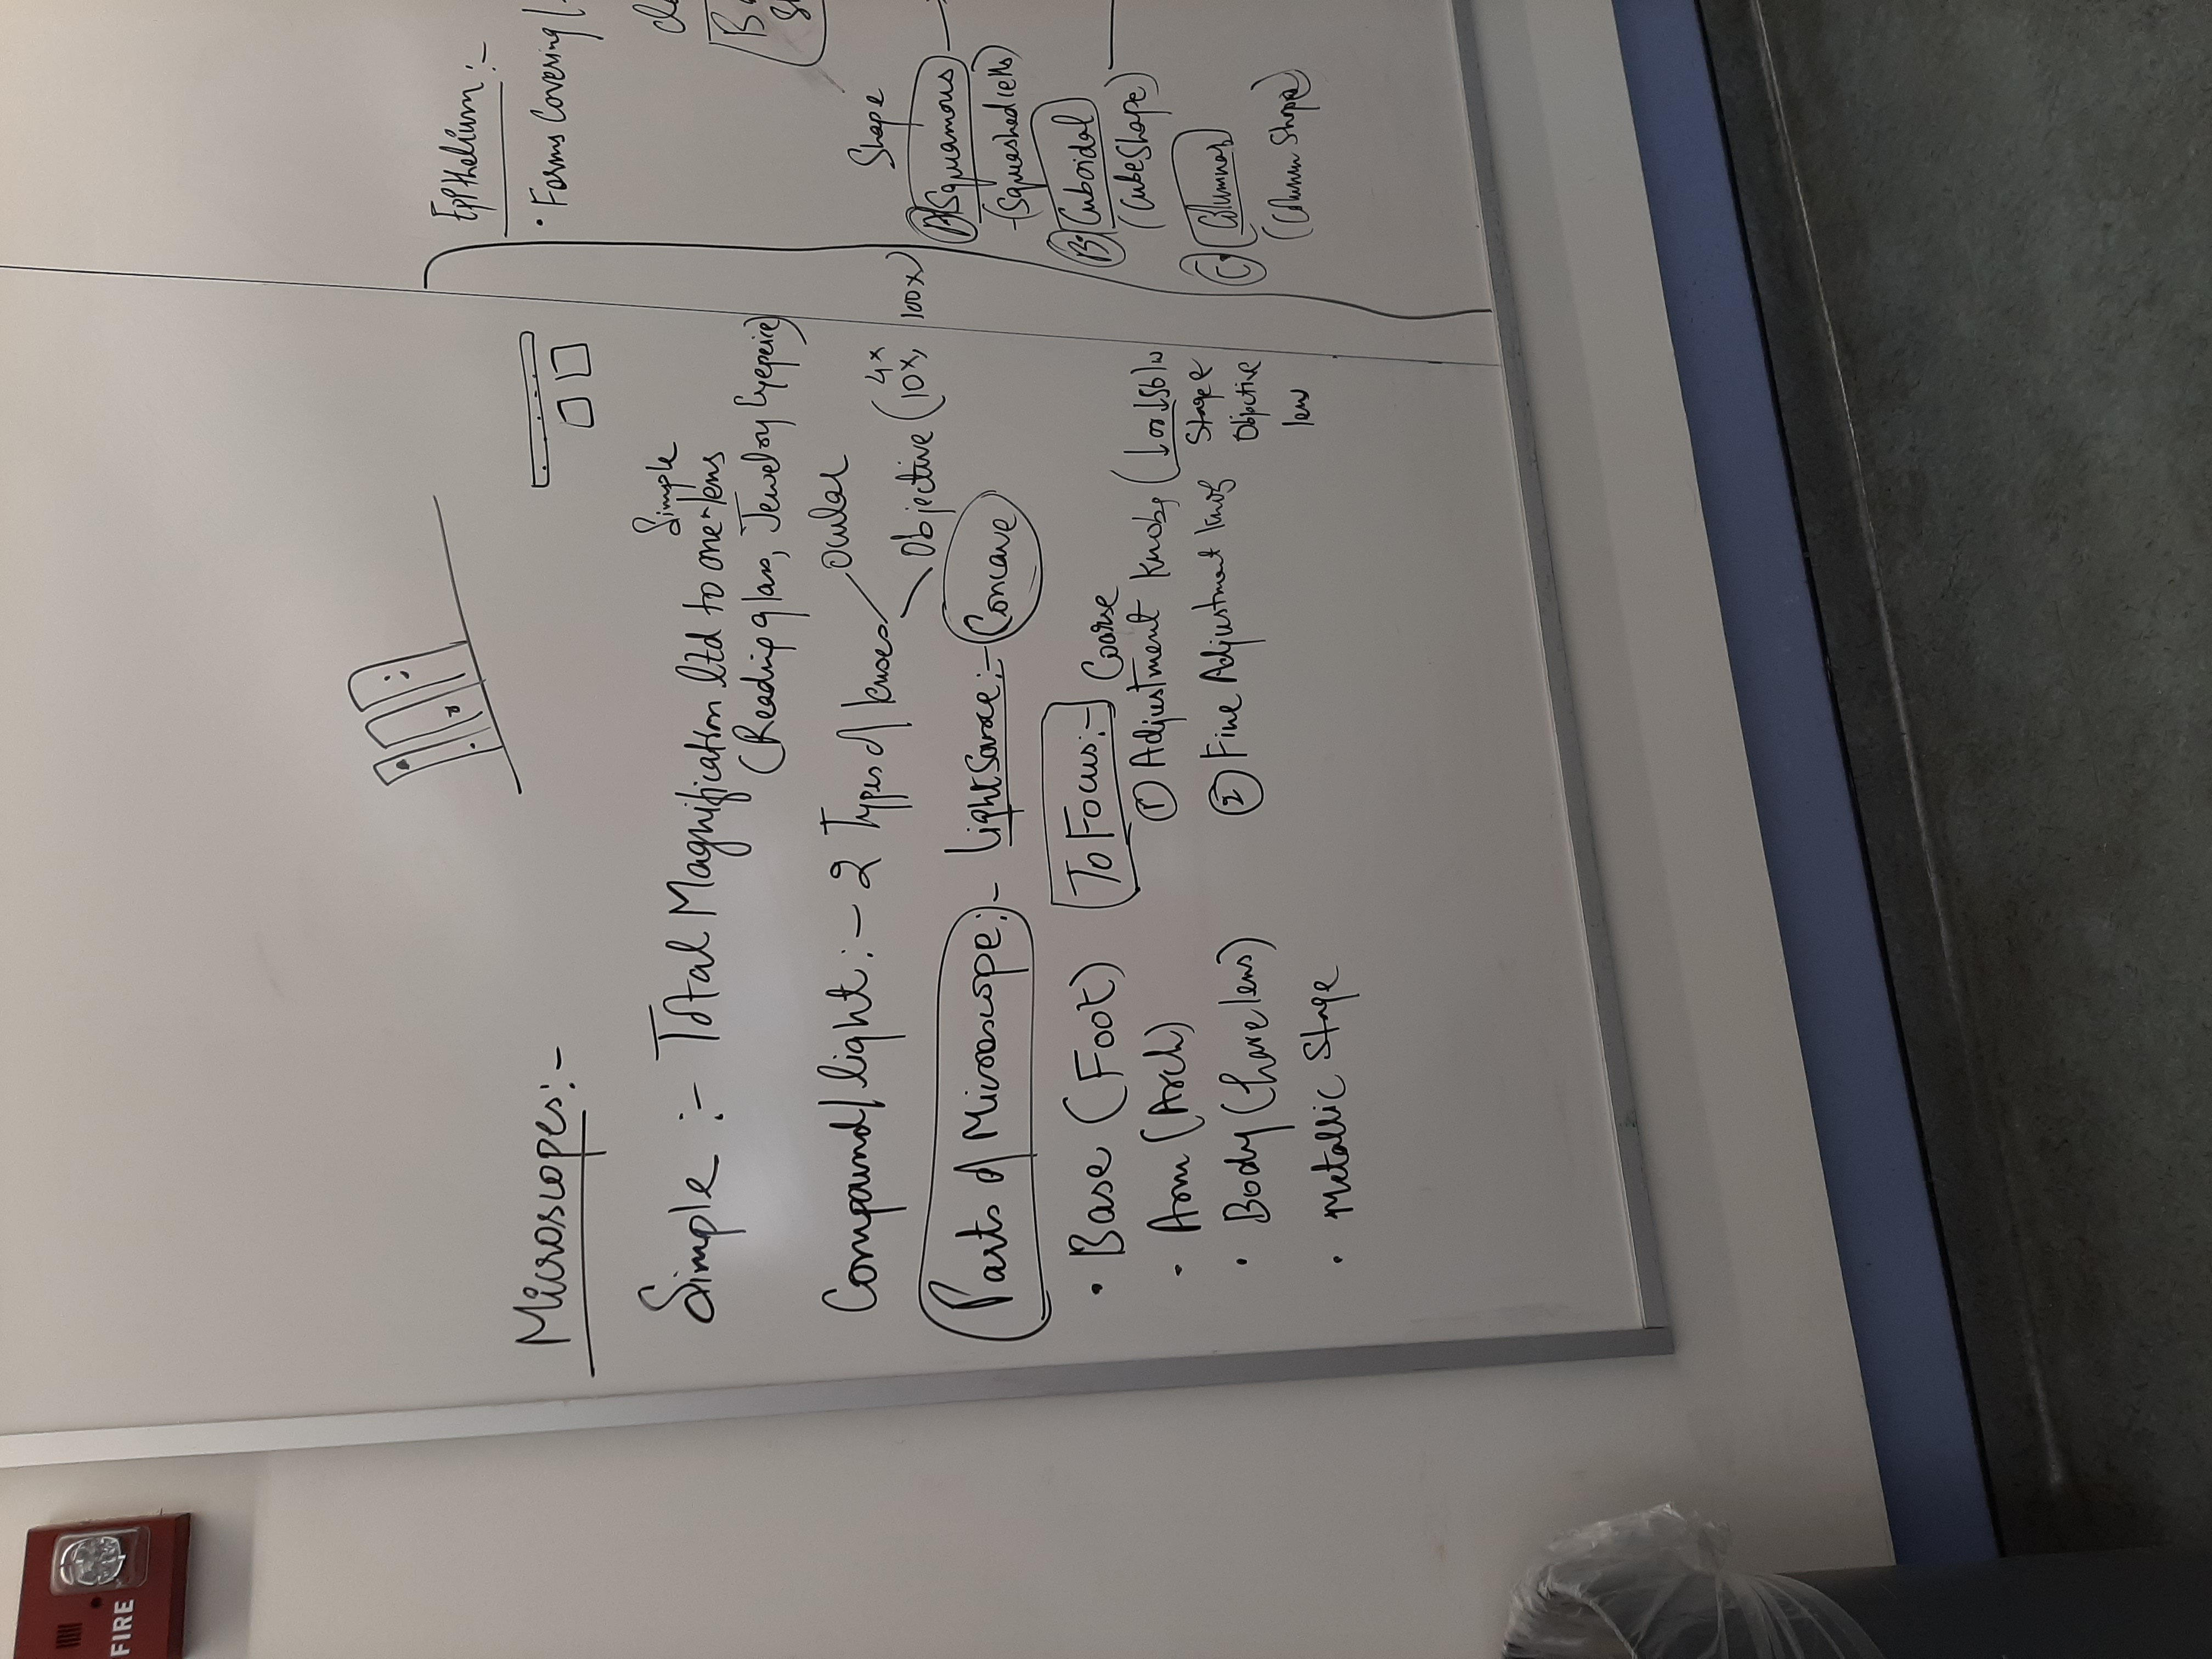 Microscopes:-
Simple :- Total Magnification ltd to one lens
Simple
(Reading glass, Jewelory Eyepeice)
Compound/light :- 2 Types of lenses
ocular
Objective (4x
10x, 100x
Parts of Microscope:- Light Source:- Concave
• Base (Foot)
• Arm (Arch)
• Body (have lens)
• Metallic Stage
To Focus:-
① Coarse Adjustment knobs
Stage &
Objective
lens
② Fine Adjustment knob
Epithelium:-
• Forms Covering /
Shape
A Squamous
(Squashed cells)
B Cuboidal
(Cube Shape)
C Columnar
(Column Shape)
FIRE